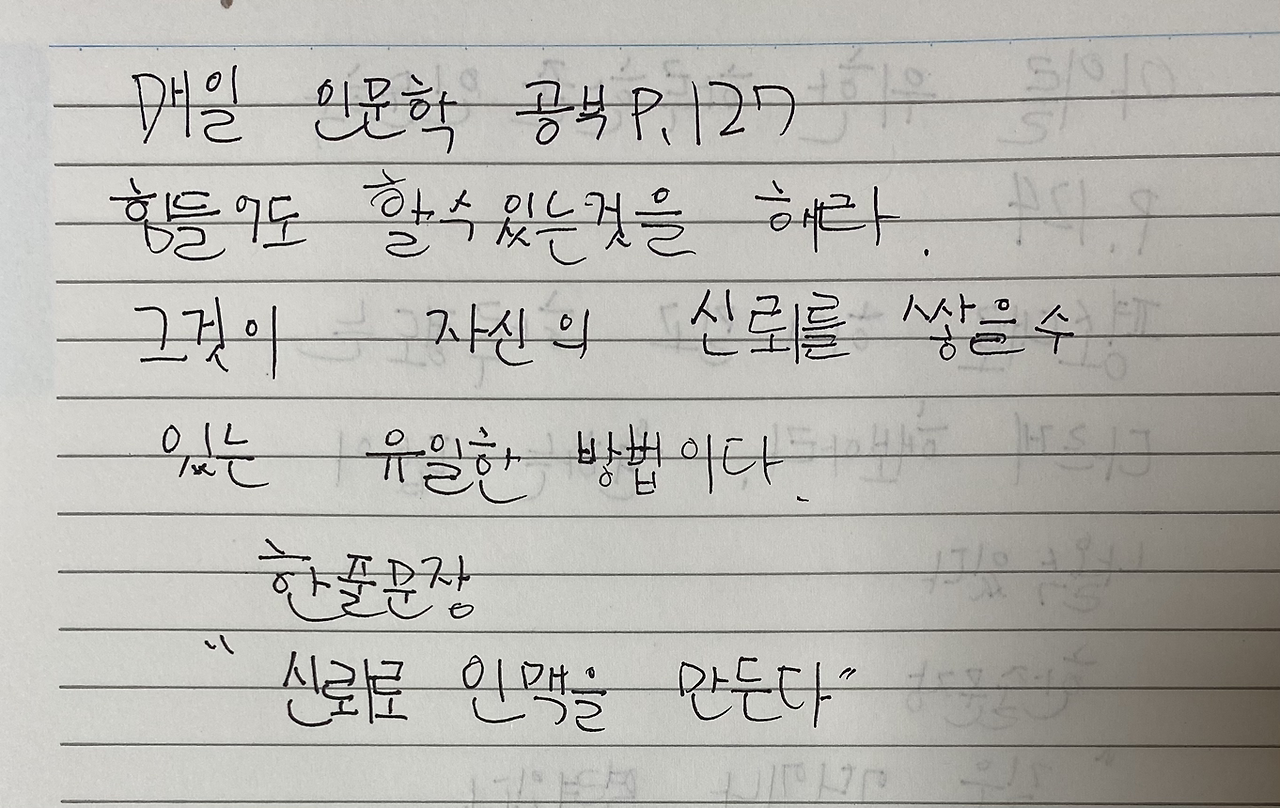 매일 인문학 공부 P.127
힘들어도 할수있는것을 해라.
그것이 자신의 신뢰를 쌓을수
있는 유일한 방법이다.
한줄문장
"신뢰로 인맥을 만든다"